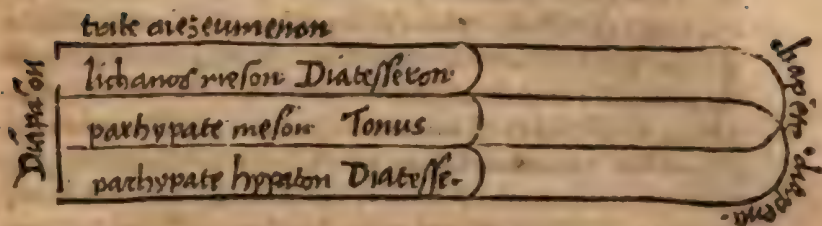 Diapason
trite diezeumenon
lichanos meson Diatesseron
parhypate meson Tonus
parhypate hypaton Diatesse-
diapente
diapente